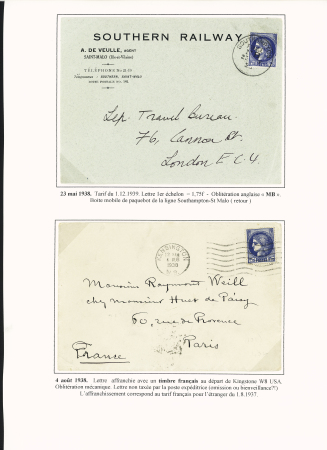 SOUTHERN RAILWAY
A. DE VEULLE, AGENT
SAINT-MALO (Ille-et-Vilaine)
TÉLÉPHONE
Lep. Travel Bureau.
76, Cannon St.
London E.C.4.
23 mai 1938. Tarif du 1.12.1939. Lettre 1er échelon – 1,75f - Oblitération anglaise « MB ».
Boite mobile de paquebot de la ligne Southampton-St Malo ( retour )
KENSINGTON
Monsieur Raymond Weill
chez Monsieur Huet de Paisy
60, rue de Provence
Paris
France
4 août 1938. Lettre affranchie avec un timbre français au départ de Kingstone W8 USA.
Oblitération mécanique. Lettre non taxée par la poste expéditrice (omission ou bienveillance?!)
L'affranchissement correspond au tarif français pour l'étranger du 1.8.1937.